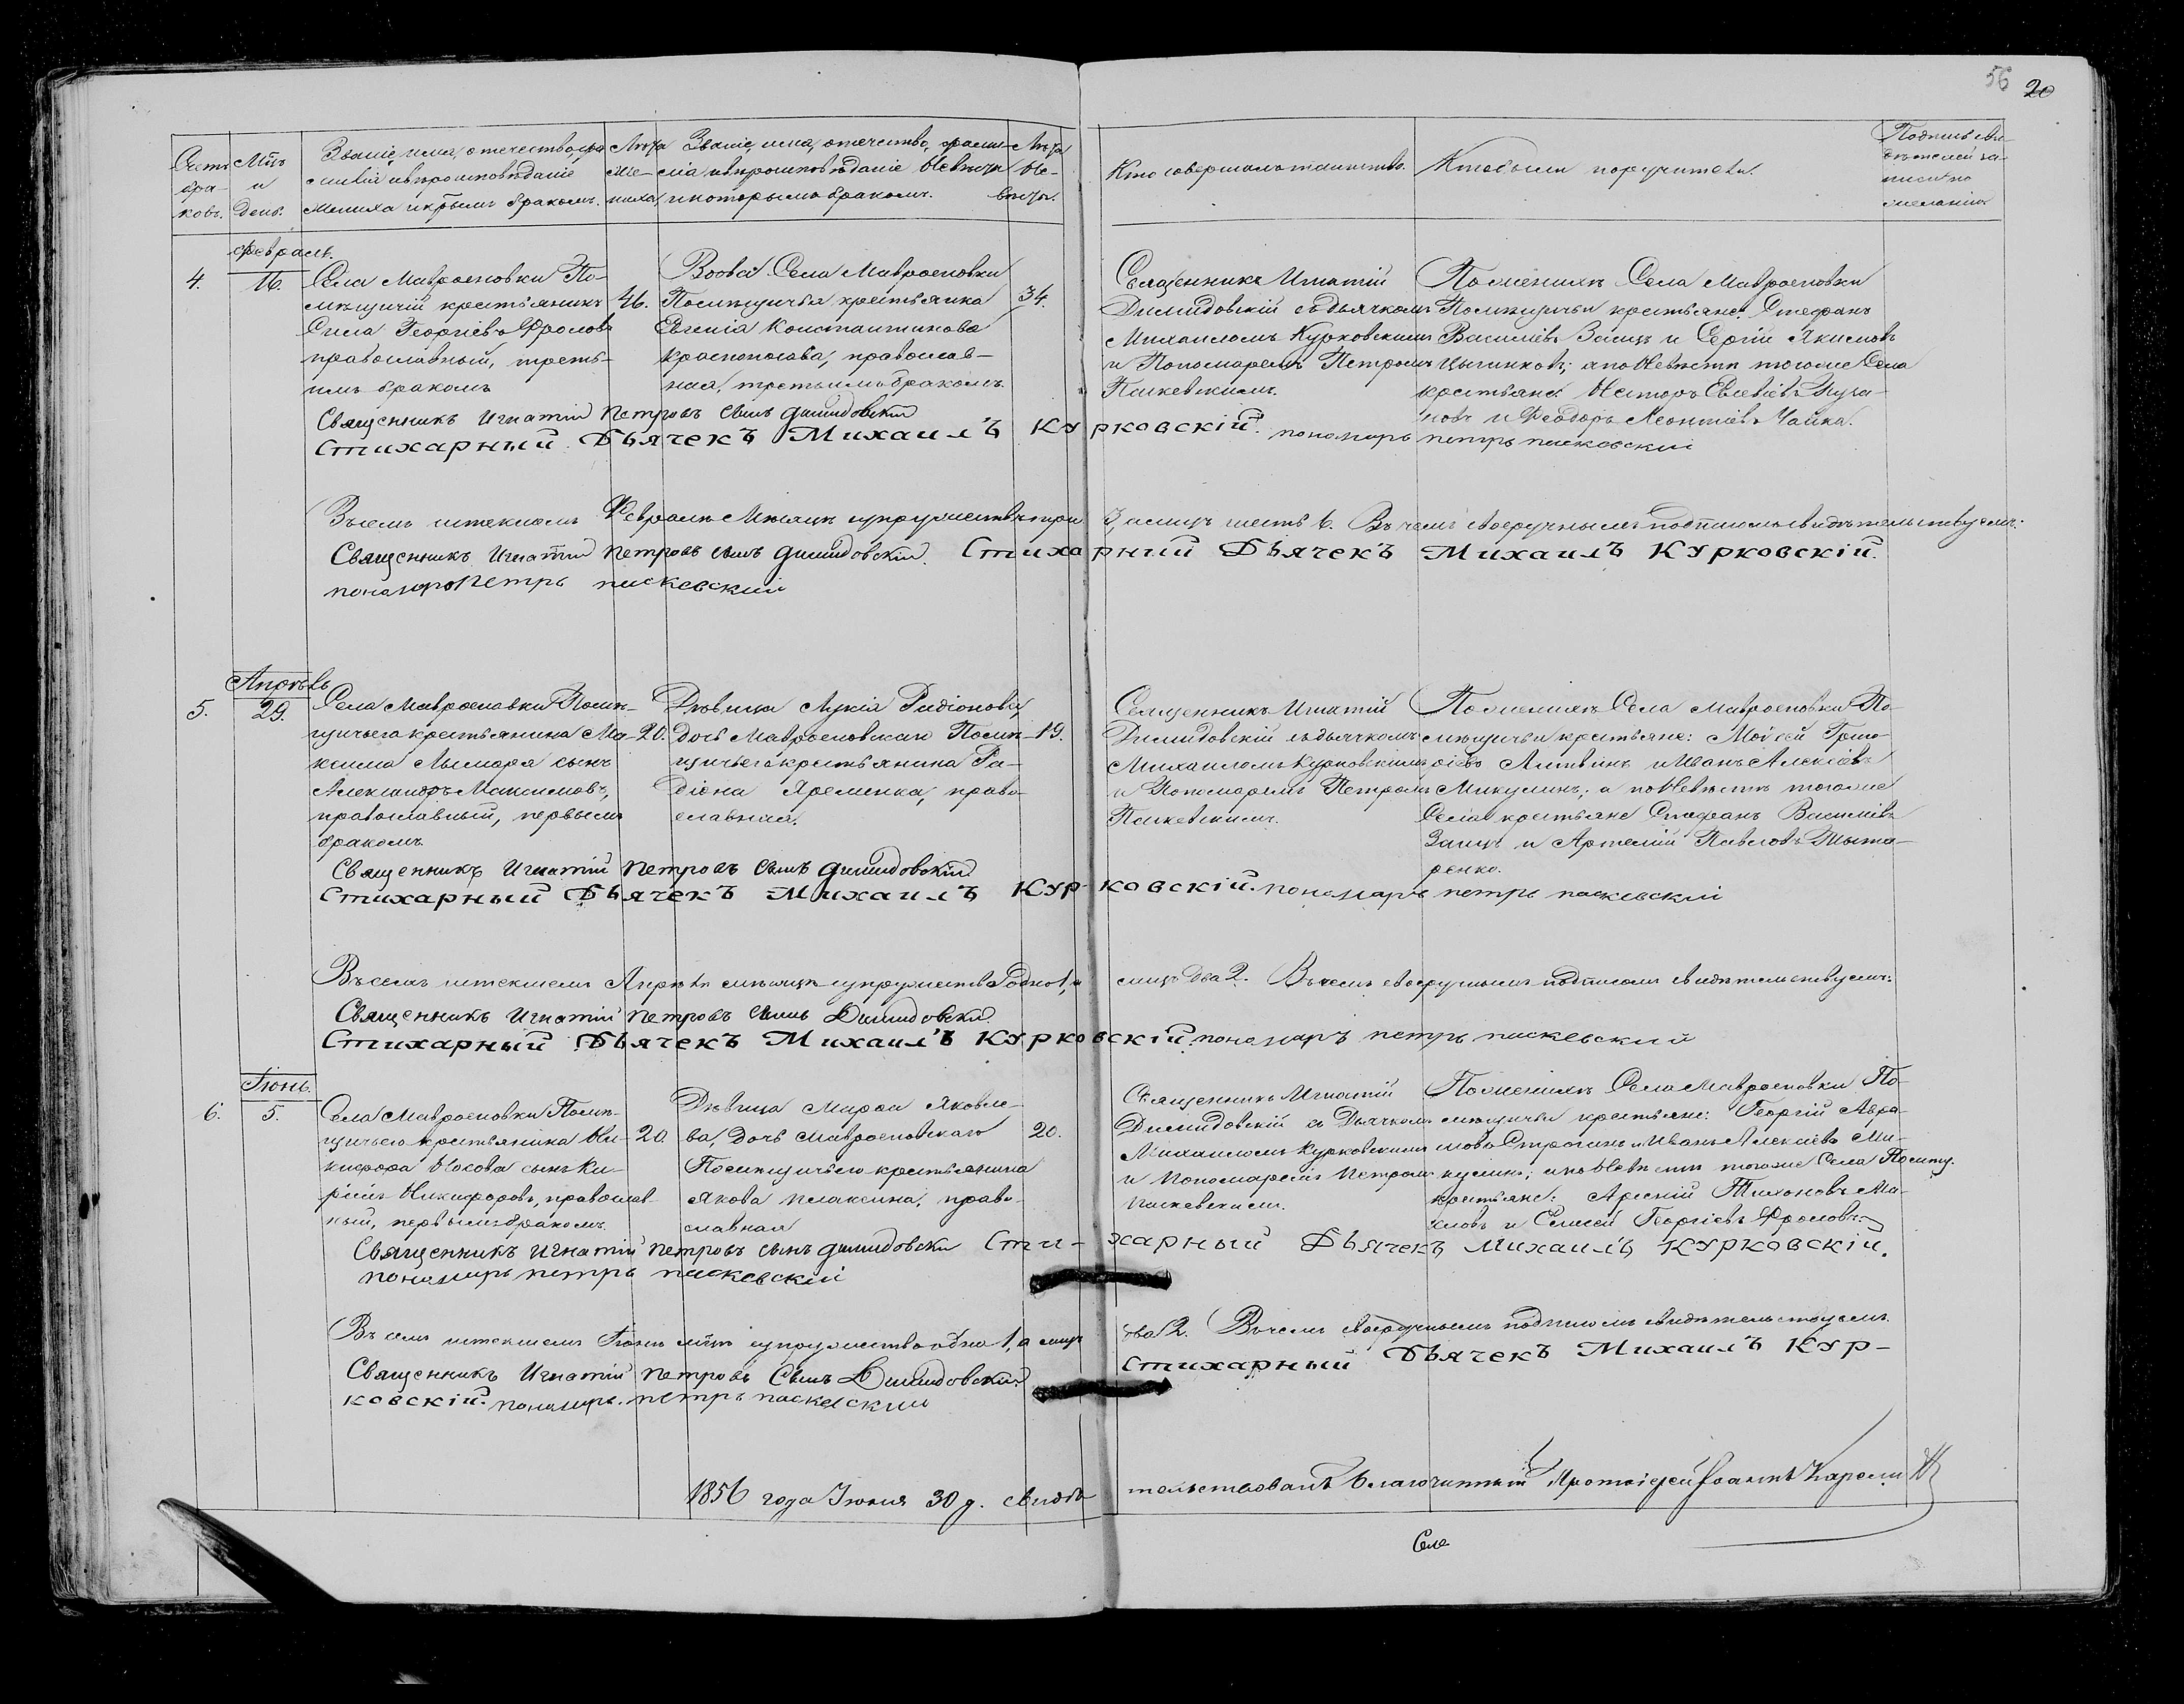 56 20
Счетъ бра- ковъ.
Мцъ и день.
Званіе, имя, отечество, фа-
милія и вѣроисповѣданіе
Жениха и кѣрымъ бракомъ.
Лѣта же- ниха.
Званіе, имя, отечество, фами-
лія и вѣроисповѣданіе Невѣсты
и которымъ бракомъ.
Лѣта Не- вѣсты.
Кто совершалъ таинство.
Кто были поручители.
Подпись сви-
дѣтелей за-
писи по
желанію
Февраль.
4.
16.
Села Мавроеновки По-
мѣщичій крестьянинъ
Сила Георгіевъ Фроловъ
православный, треть-
имъ бракомъ
46.
Вдова Села Мавроеновки
Помѣщичья крестьянка
Евгенія Константинова
Красноносова, православ-
ная, третьимъ бракомъ.
34.
Священникъ Игнатій
Димидовскій съ дьячкомъ
Михаиломъ Курковскимъ
и Пономаремъ Петромъ
Паскевскимъ.
По женихѣ Села Мавроеновки
Помѣщичьи крестьяне: Стефанъ
Василіевъ Заицъ и Сергій Якимовъ
Цыганковъ; а по Невѣстѣ тогоже Села
крестьяне Несторъ Евсевіевъ
новъ и Феодоръ Леонтіевъ Чайка.
Священникъ Игнатій Петровъ сынъ Димидовскій
Стихарный Дьячекъ Михаилъ Курковскій. пономарь петръ паскевский
Въ семъ истекшемъ Февралѣ Мѣсяцѣ супружествъ три 3, а лицъ шесть 6. Въ чемъ своеручнымъ подписомъ свидѣтельствуемъ:
Священникъ Игнатій Петровъ сынъ Димидовскій. Стихарный Дьячекъ Михаилъ Курковскій.
пономарь Петръ паскевский
Апрѣль
5.
29.
Села Мавроеновки Помѣ-
щичьего крестьянина Ма-
ксима Лымаря сынъ
Александръ Максимовъ,
православный, первымъ
бракомъ.
20.
Дѣвица Лукія Радіонова,
дочь Мавроеновскаго Помѣ-
щичьего крестьянина Ра-
діона Яременка, право-
славная.
19.
Священникъ Игнатій
Димидовскій съ дьячкомъ
Михаиломъ Курковскимъ
и Пономаремъ Петромъ
Паскевскимъ.
По женихѣ Села Мавроеновки По-
мѣщичьи крестьяне: Моісей Григо-
ріевъ Литвинъ и Иванъ Алексіевъ
Микулинъ; а по Невѣстѣ тогоже
Села крестьяне Стефанъ Василіевъ
Заицъ и Артемій Павловъ Тыта-
ренко.
Священникъ Игнатій Петровъ сынъ Димидовскій
Стихарный Дьячекъ Михаилъ Курковскій. пономарь петръ паскевскій
Въ семъ истекшемъ Апрѣлѣ мѣсяцѣ супружество одно 1, а лицъ два 2. Въ чемъ своеручнымъ подписомъ свидѣтельствуемъ:
Священникъ Игнатій Петровъ сынъ Димидовскій.
Стихарный Дьячекъ Михаилъ Курковскій. пономаръ петръ паскевский
Іюнь.
6.
5.
Села Мавроеновки Помѣ-
щичьего крестьянина Ни-
кифора Носова сынъ Ки-
рілъ Никифоровъ, православ-
ный, первымъ бракомъ.
20.
Дѣвица Марѳа Яковле-
ва, дочь Мавроеновскаго
Помѣщичьего крестьянина
Якова Плаксина, право-
славная
20.
Священникъ Игнатій
Димидовскій съ Дьячкомъ
Михаиломъ Курковскимъ
и Пономаремъ Петромъ
Паскевскимъ.
По женихѣ Села Мавроеновки По-
мѣщичьи крестьяне: Георгій Авра-
мовъ Строгинъ и Иванъ Алексіевъ Ми-
кулинъ; а по Невѣстѣ тогоже Села Помѣщ.
крестьяне: Арсеній Тихоновъ Ма-
ловъ и Елисей Георгіевъ Фроловъ.
Священникъ Игнатій Петровъ сынъ Димидовски Стихарный Дьячекъ Михаилъ Курковскій.
пономарь петръ паскевскій
Въ семъ истекшемъ Іюнѣ мцѣ супружество одно 1, а лицъ два 2. Въ чемъ своеручнымъ подписомъ свидѣтельствуемъ.
Священникъ Игнатій Петровъ Сынъ Димидовскій. Стихарный Дьячекъ Михаилъ Кур-
ковскій. пономарь. петръ паскевский
1856 года Іюня 30 д. свидѣтельствовалъ Благочинный Протоіерей Іоаннъ
Села